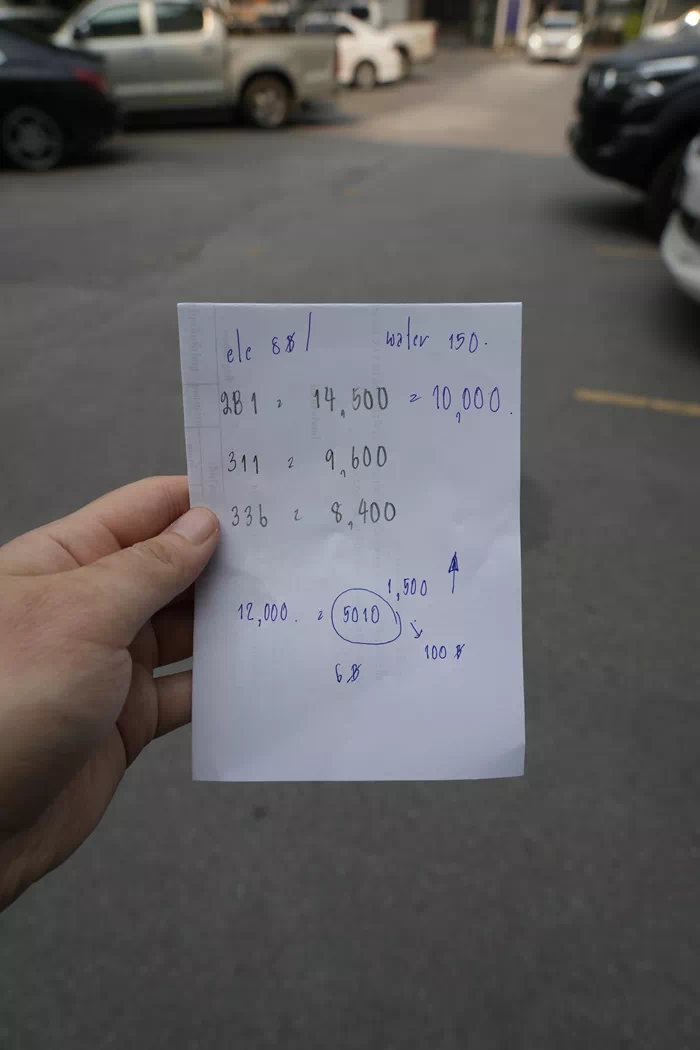 ele 8฿/ water 150.
2B1 = 14,500 = 10,000.
311 = 9,600
336 = 8,400
1,500 ↑
12,000. = 5010
100 ฿
6฿